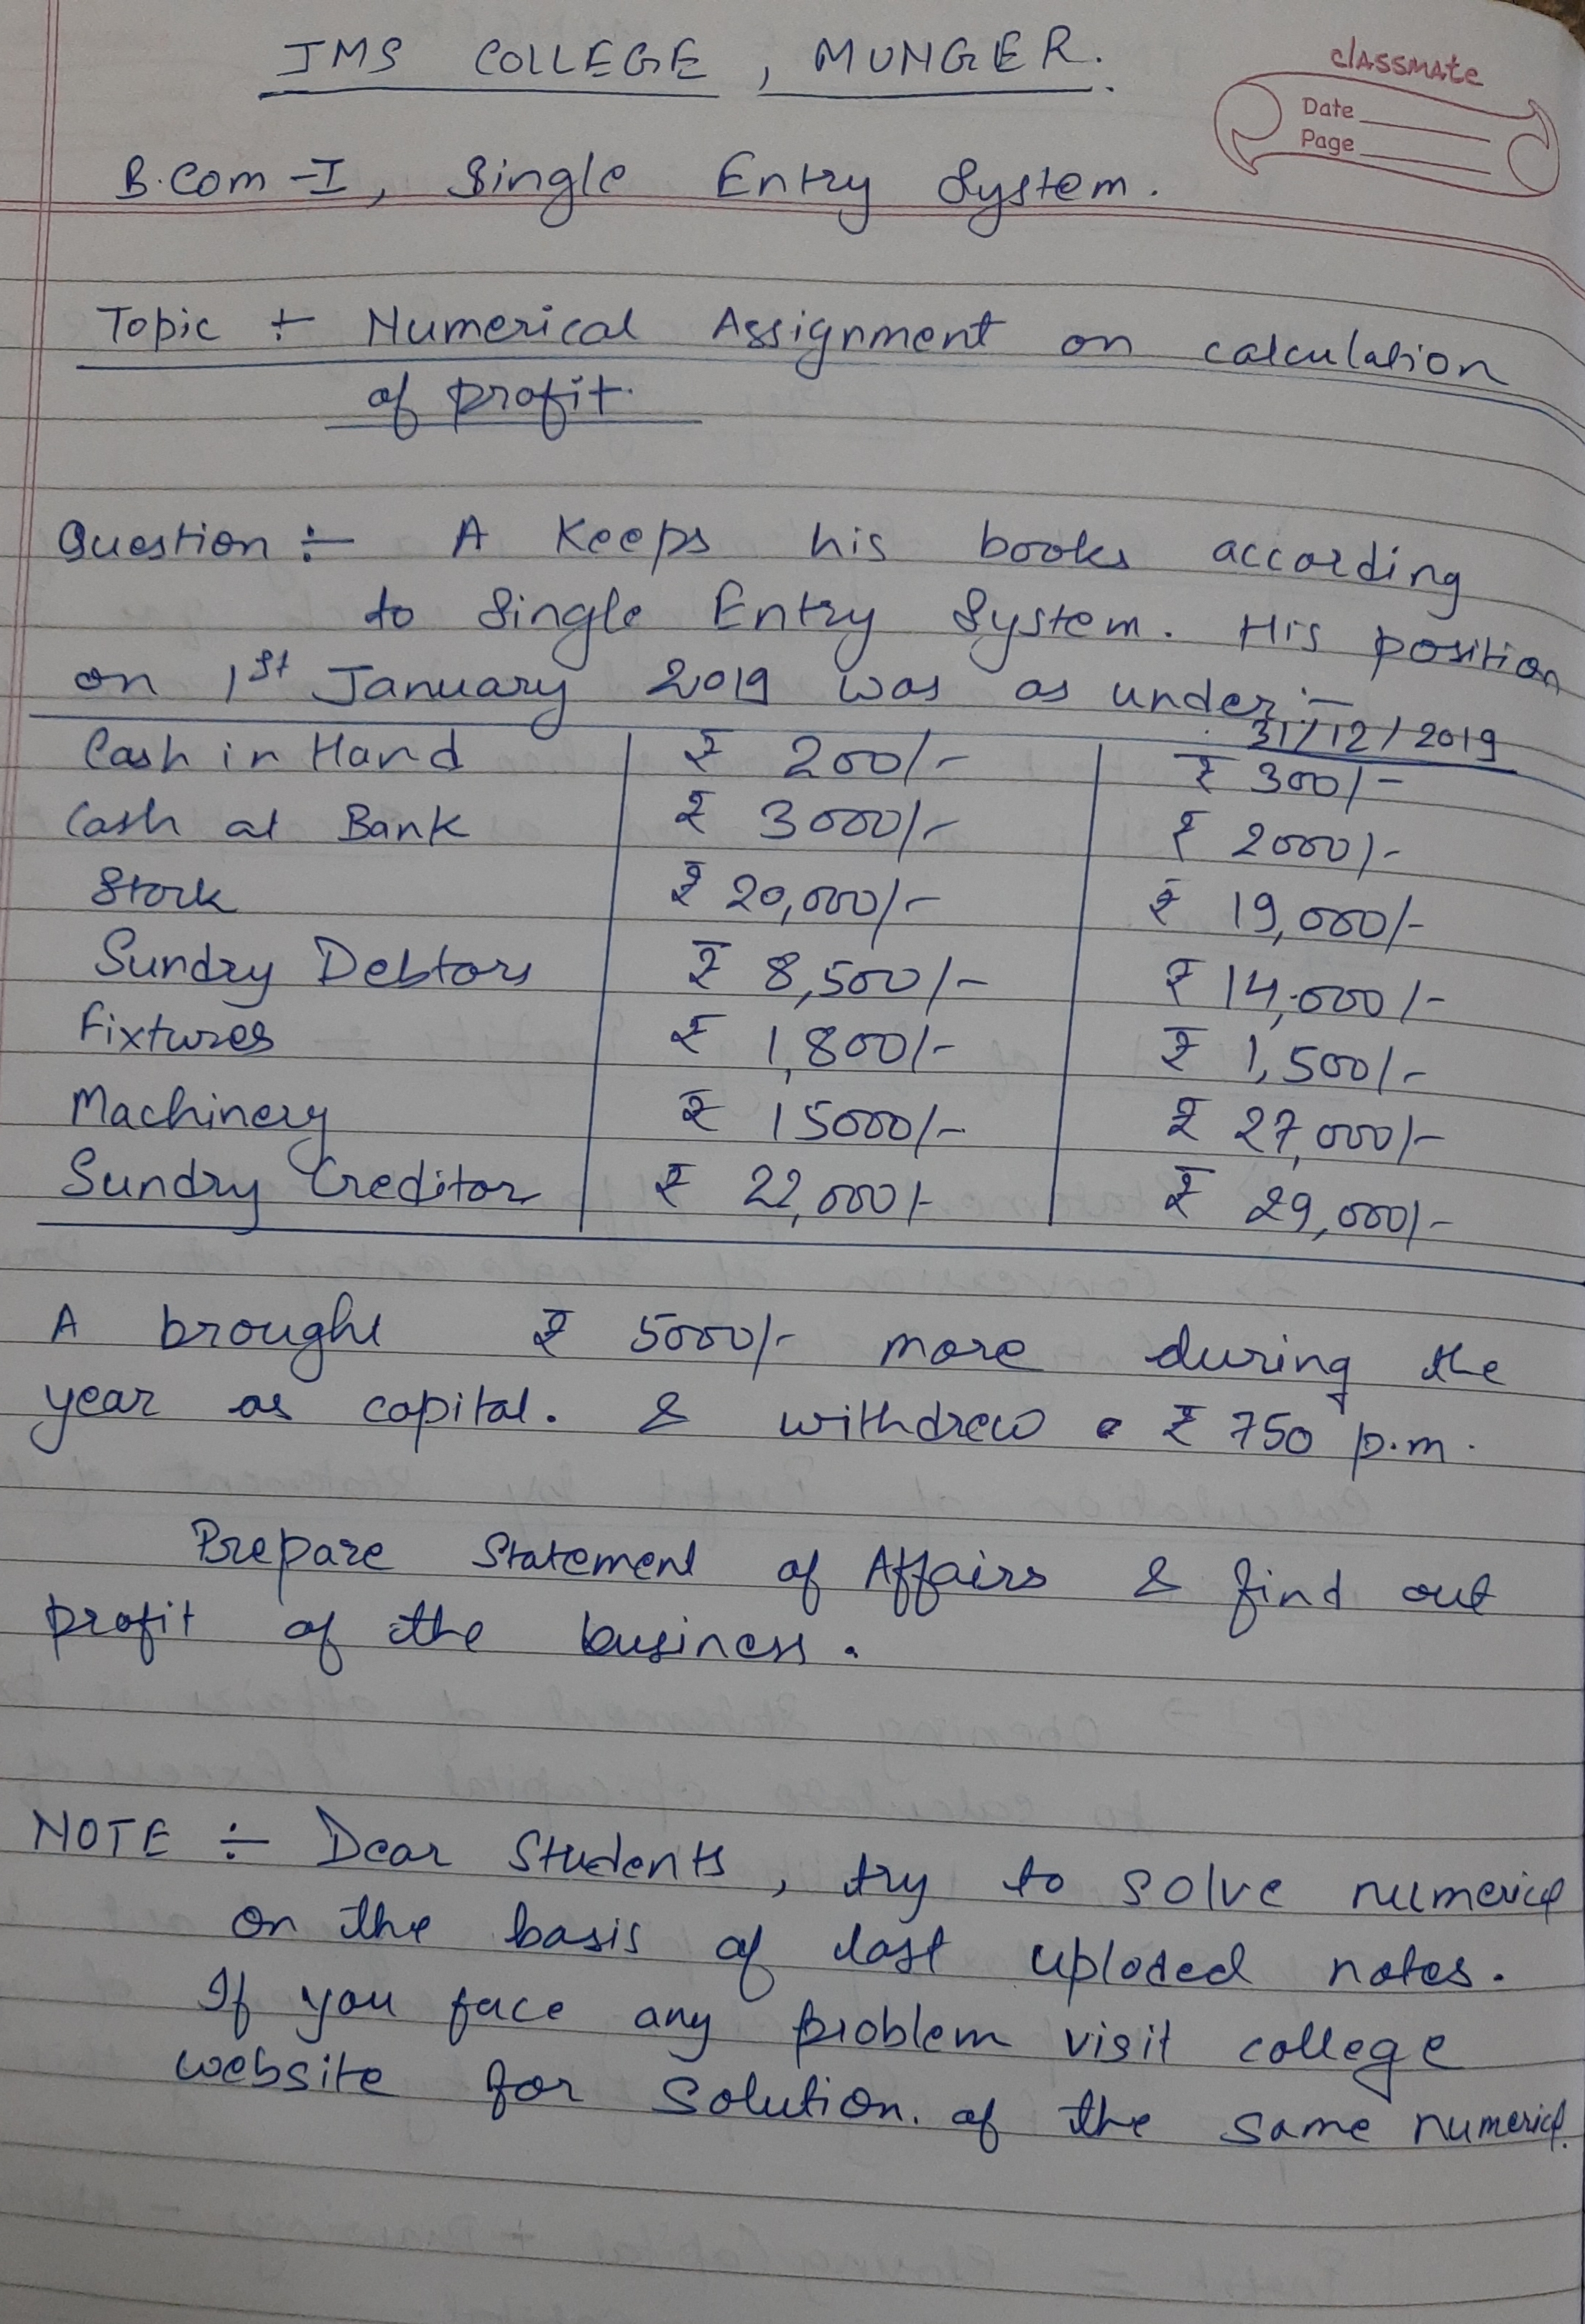 JMS COLLEGE, MUNGER.
classmate
Date
Page
B.Com-I, Single Entry System.
Topic ÷ Numerical Assignment on calculation
of profit.
Question :- A Keeps his books according
to Single Entry System. His position
on 1st January 2019 was as under :-
31/12/2019
Cash in Hand ₹ 200/- ₹ 300/-
Cash at Bank ₹ 3000/- ₹ 2000/-
Stock ₹ 20,000/- ₹ 19,000/-
Sundry Debtors ₹ 8,500/- ₹ 14,000/-
Fixtures ₹ 1,800/- ₹ 1,500/-
Machinery ₹ 15000/- ₹ 27,000/-
Sundry Creditor ₹ 22,000/- ₹ 29,000/-
A brought ₹ 5000/- more during the
year as capital. & withdrew ₹ 750 p.m.
Prepare Statement of Affairs & find out
profit of the business.
NOTE ÷ Dear Students, try to solve numerical
on the basis of last uploded notes.
If you face any problem visit college
website for Solution. of the same numerical.